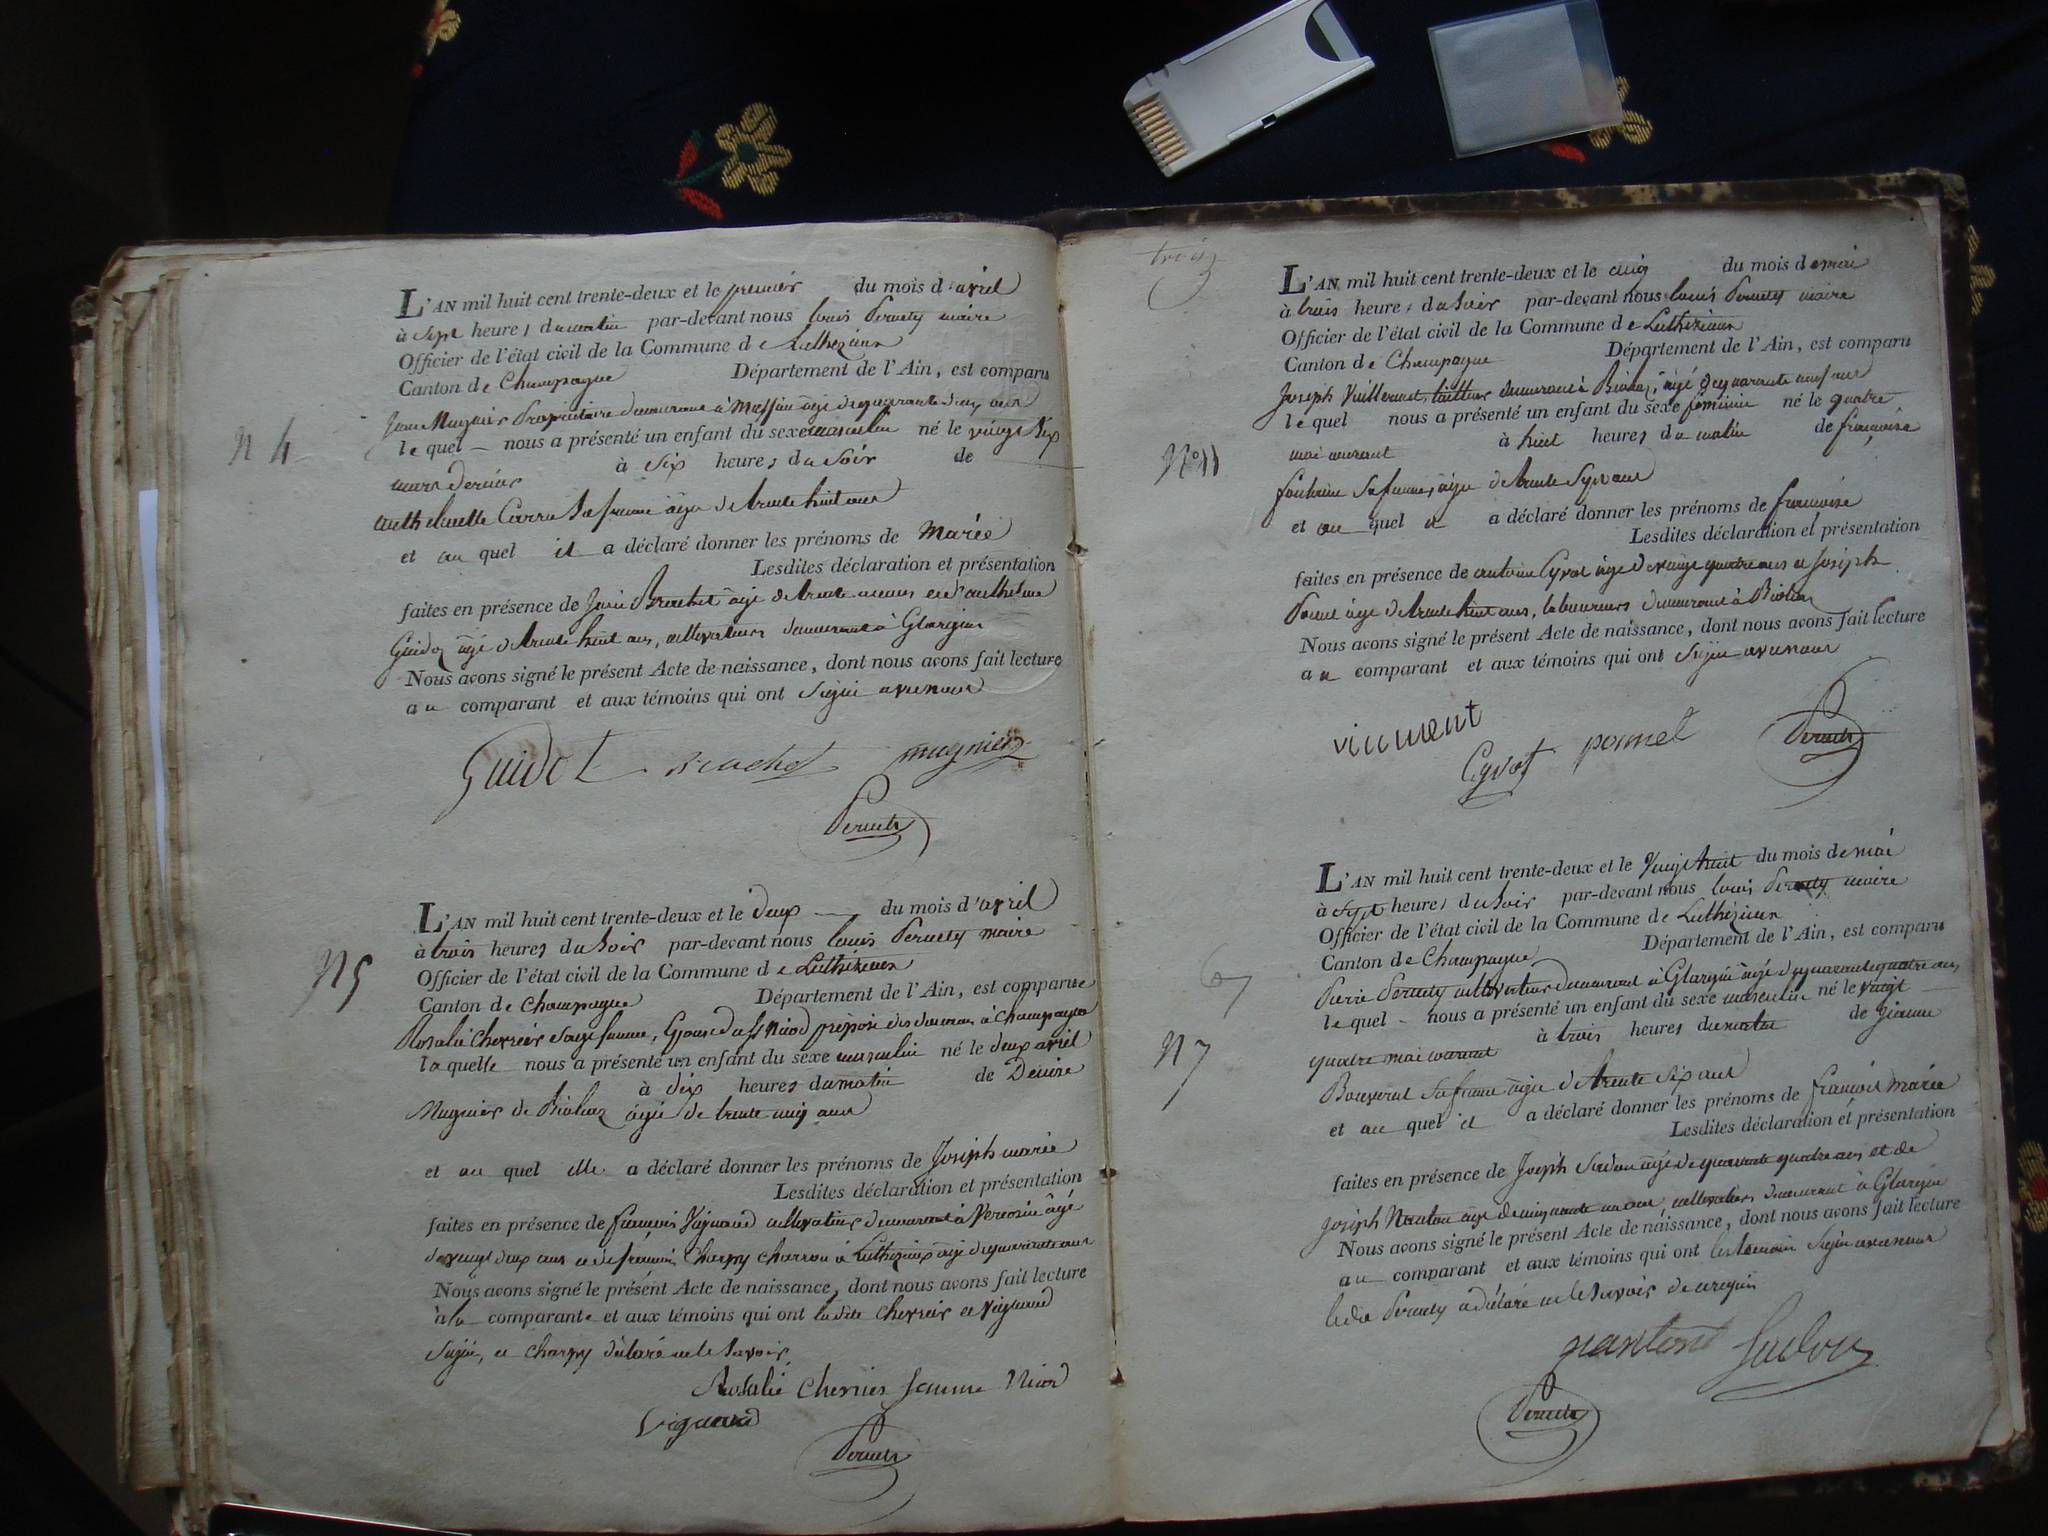 N 4
L'AN mil huit cent trente-deux et le premier du mois d'avril
à sept heures du matin par-devant nous louis Peruety maire
Officier de l'état civil de la Commune de Luthezieux
Canton de Champagne Département de l'Ain, est comparu
Jean Mugnier Propriétaire demeurant à Massin âgé de quarante deux ans
le quel nous a présenté un enfant du sexe masculin né le vingt six
à six heures du soir de
mars dernier
anthelmette Carra sa femme âgée de trente huit ans
et au quel il a déclaré donner les prénoms de Marie
Lesdites déclaration et présentation
faites en présence de Brachet âgé de trente ans et d'anthelme
Guidoz âgé de trente huit ans, cultivateurs demeurant à Glargin
Nous avons signé le présent Acte de naissance, dont nous avons fait lecture
au comparant et aux témoins qui ont signé avec nous
Guidot Brachet mugnier
Peruety
N 5
L'AN mil huit cent trente-deux et le deux du mois d'avril
à trois heures du soir par-devant nous louis Peruety maire
Officier de l'état civil de la Commune de Luthezieux
Canton de Champagne Département de l'Ain, est comparue
Rosalie Cherrier sage femme, Epouse du Sr Niod préposé des douanes à Champagne
la quelle nous a présenté un enfant du sexe masculin né le deux avril
à dix heures du matin de Denise
Mugnier de Bioléaz âgée de trente cinq ans
et au quel elle a déclaré donner les prénoms de Joseph marie
Lesdites déclaration et présentation
faites en présence de françois Vignaud cultivateur demeurant à âgé
de vingt deux ans et de françois Charpy charron à Luthezieux âgé de quarante ans
Nous avons signé le présent Acte de naissance, dont nous avons fait lecture
à la comparante et aux témoins qui ont la dite Cherrier et Vignaud
signé, et Charpy déclaré ne le savoir
Rosalie cherrier femme Niod
Vignaud
Peruety
trois
3
N° 11
L'AN mil huit cent trente-deux et le cinq du mois de mai
à trois heures du soir par-devant nous louis Peruety maire
Officier de l'état civil de la Commune de Luthezieux
Canton de Champagne Département de l'Ain, est comparu
Joseph tailleur demeurant à Bioléaz, âgé de quarante neuf ans
le quel nous a présenté un enfant du sexe féminin né le quatre
mai courant à huit heures du matin de françoise
fontaine sa femme, âgée de trente sept ans
et au quel il a déclaré donner les prénoms de françoise
Lesdites déclaration et présentation
faites en présence de antoine Cyvot âgé de vingt quatre ans et Joseph
Pomel âgé de trente huit ans, laboureurs demeurant à Bioléaz
Nous avons signé le présent Acte de naissance, dont nous avons fait lecture
au comparant et aux témoins qui ont signé avec nous
Cyvot pomel Peruety
6
N 7
L'AN mil huit cent trente-deux et le Vingt huit du mois de mai
à sept heures du soir par-devant nous louis Peruety maire
Officier de l'état civil de la Commune de Luthezieux
Canton de Champagne Département de l'Ain, est comparu
Pierre Peruety cultivateur demeurant à Glargin âgé de quarante quatre ans
le quel nous a présenté un enfant du sexe masculin né le vingt
quatre mai courant à trois heures du matin de jeanne
Bouverat sa femme âgée de trente six ans
et au quel il a déclaré donner les prénoms de françois marie
Lesdites déclaration et présentation
faites en présence de Joseph Sudon âgé de quarante quatre ans et de
Joseph Nanton âgé de cinquante un ans, cultivateurs demeurant à Glargin
Nous avons signé le présent Acte de naissance, dont nous avons fait lecture
au comparant et aux témoins qui ont les témoins signé avec nous
ledit Peruety a déclaré ne le savoir de ce requis
nantont Sudon
Peruety